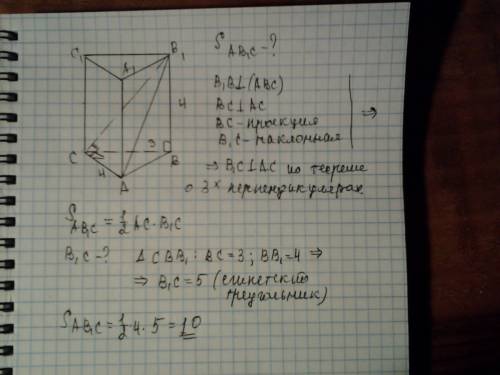 S AB₁C - ?
C₁ B₁
A₁
B₁B⊥(ABC)
4
BC⊥AC
BC - проекция
B₁C - наклонная
⇒
C 3 B
4
A
⇒ B₁C⊥AC по теореме
о 3ˣ перпендикулярах
S AB₁C = 1/2 AC · B₁C
B₁C - ? Δ CBB₁ : BC = 3 ; BB₁ = 4 ⇒
⇒ B₁C = 5 (египетский
треугольник)
S AB₁C = 1/2 · 4 · 5 = 10